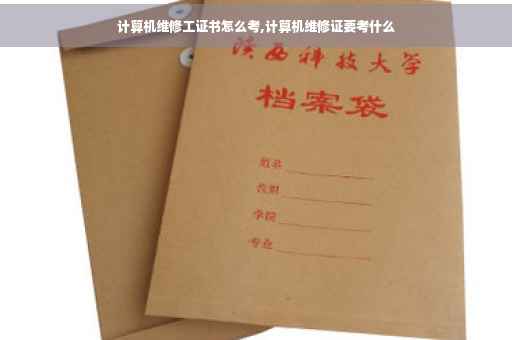 计算机维修工证书怎么考,计算机维修证要考什么
陕西科技大学
档案袋
学院
专业